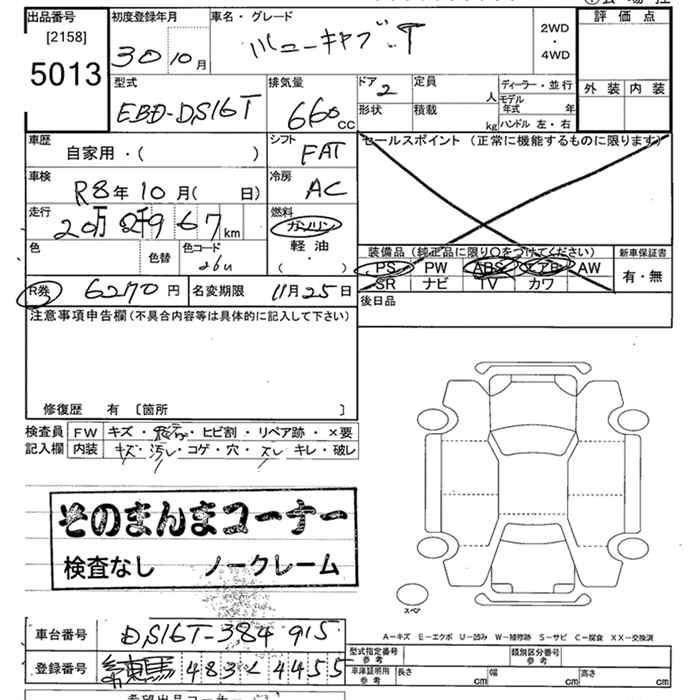 出品番号 初度登録年月 車名・グレード 評価点
[2158]
5013
30 10月 ミニキャブ T 2WD・4WD
型式 排気量 ドア 定員 ディーラー・並行 外装 内装
EBD-DS16T 660cc 2 人 モデル年式 年
形状 積載 kg ハンドル 左・右
車歴 シフト セールスポイント (正常に機能するものに限ります)
自家用・( ) FAT
車検 冷房
R8年10月( 日) AC
走行 燃料
20万 967km ガソリン
軽油
・
( )
色 色替 色コード
26U
装備品 (純正品に限り○をつけてください) 新車保証書
PS PW ABS エアB AW 有・無
SR ナビ TV カワ
R券 6270円 名変期限 11月25日 後日品
注意事項申告欄(不具合内容等は具体的に記入して下さい)
修復歴 有 〔箇所 〕
検査員 FW キズ・飛石・ヒビ割・リペア跡・×要
記入欄 内装 キズ・汚レ・コゲ・穴・スレ・キレ・破レ
そのまんまコーナー
検査なし ノークレーム
スペア
A−キズ E−エクボ U−凹み W−補修跡 S−サビ C−腐食 XX−交換済
車台番号 DS16T-384915
型式指定番号 参考 類別区分番号 参考
登録番号 練馬 483 4455
車庫証明用 参考 長さ cm 幅 cm 高さ cm
希望出品コーナー